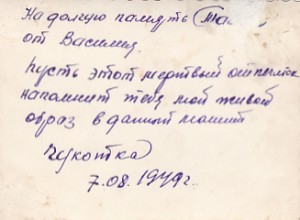 На долгую память Та
от Василия.
Пусть этот мертвый отпечаток
напомнит тебе мой живой
образ в данный момент
Чукотка
7.08.1949г.